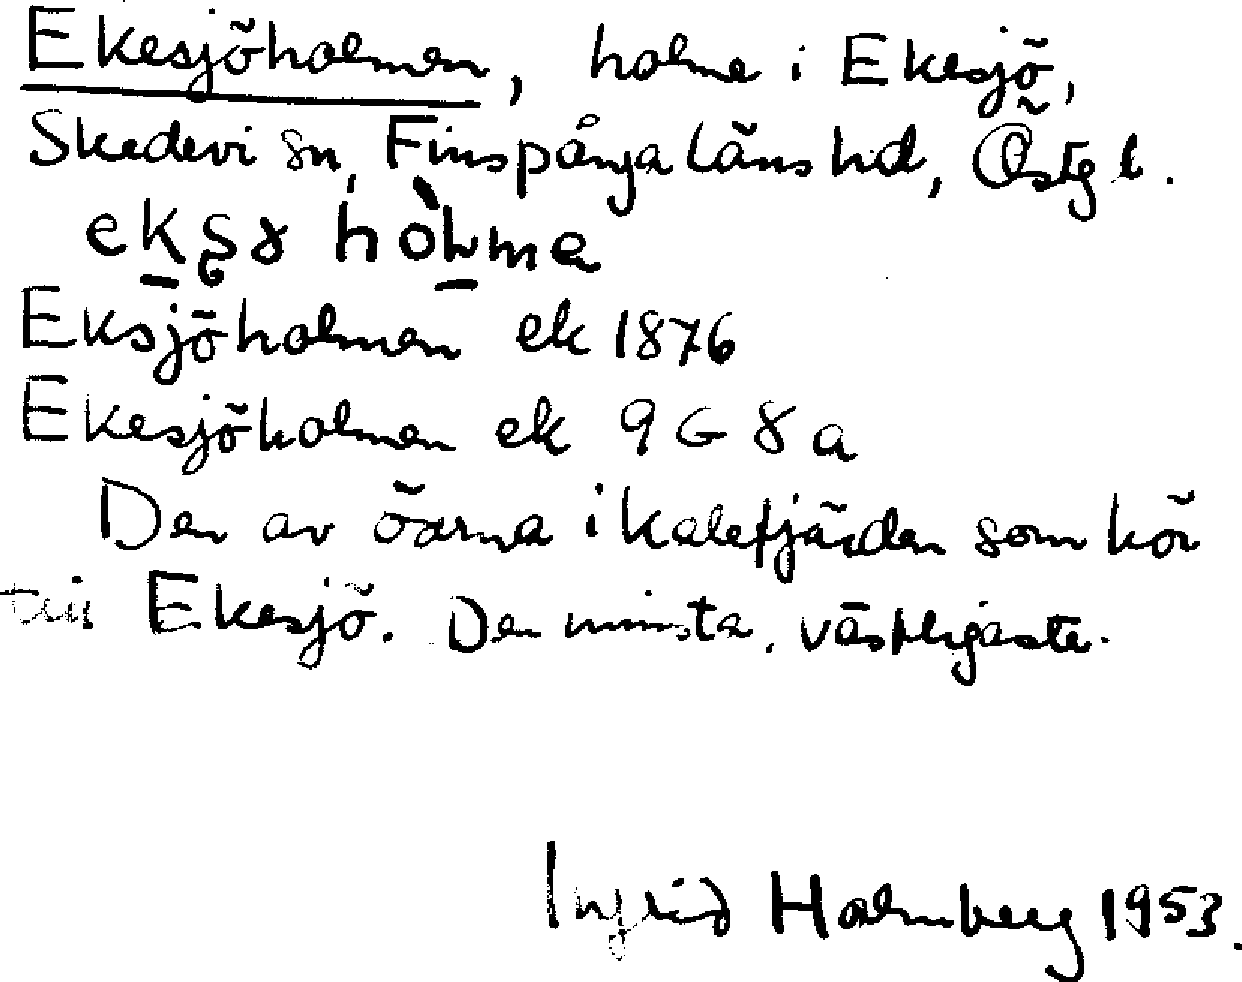 Ekesjöholmen, holme i Ekesjö,
Skedevi sn, Finspånga läns hd, Östgl.
Eksjöholmen ek 1876
Ekesjöholmen ek 9 G 8 a
Den av öarna i kalefjärden som hör
till Ekesjö. Den minsta, västligaste.
Ingrid Holmberg 1953.